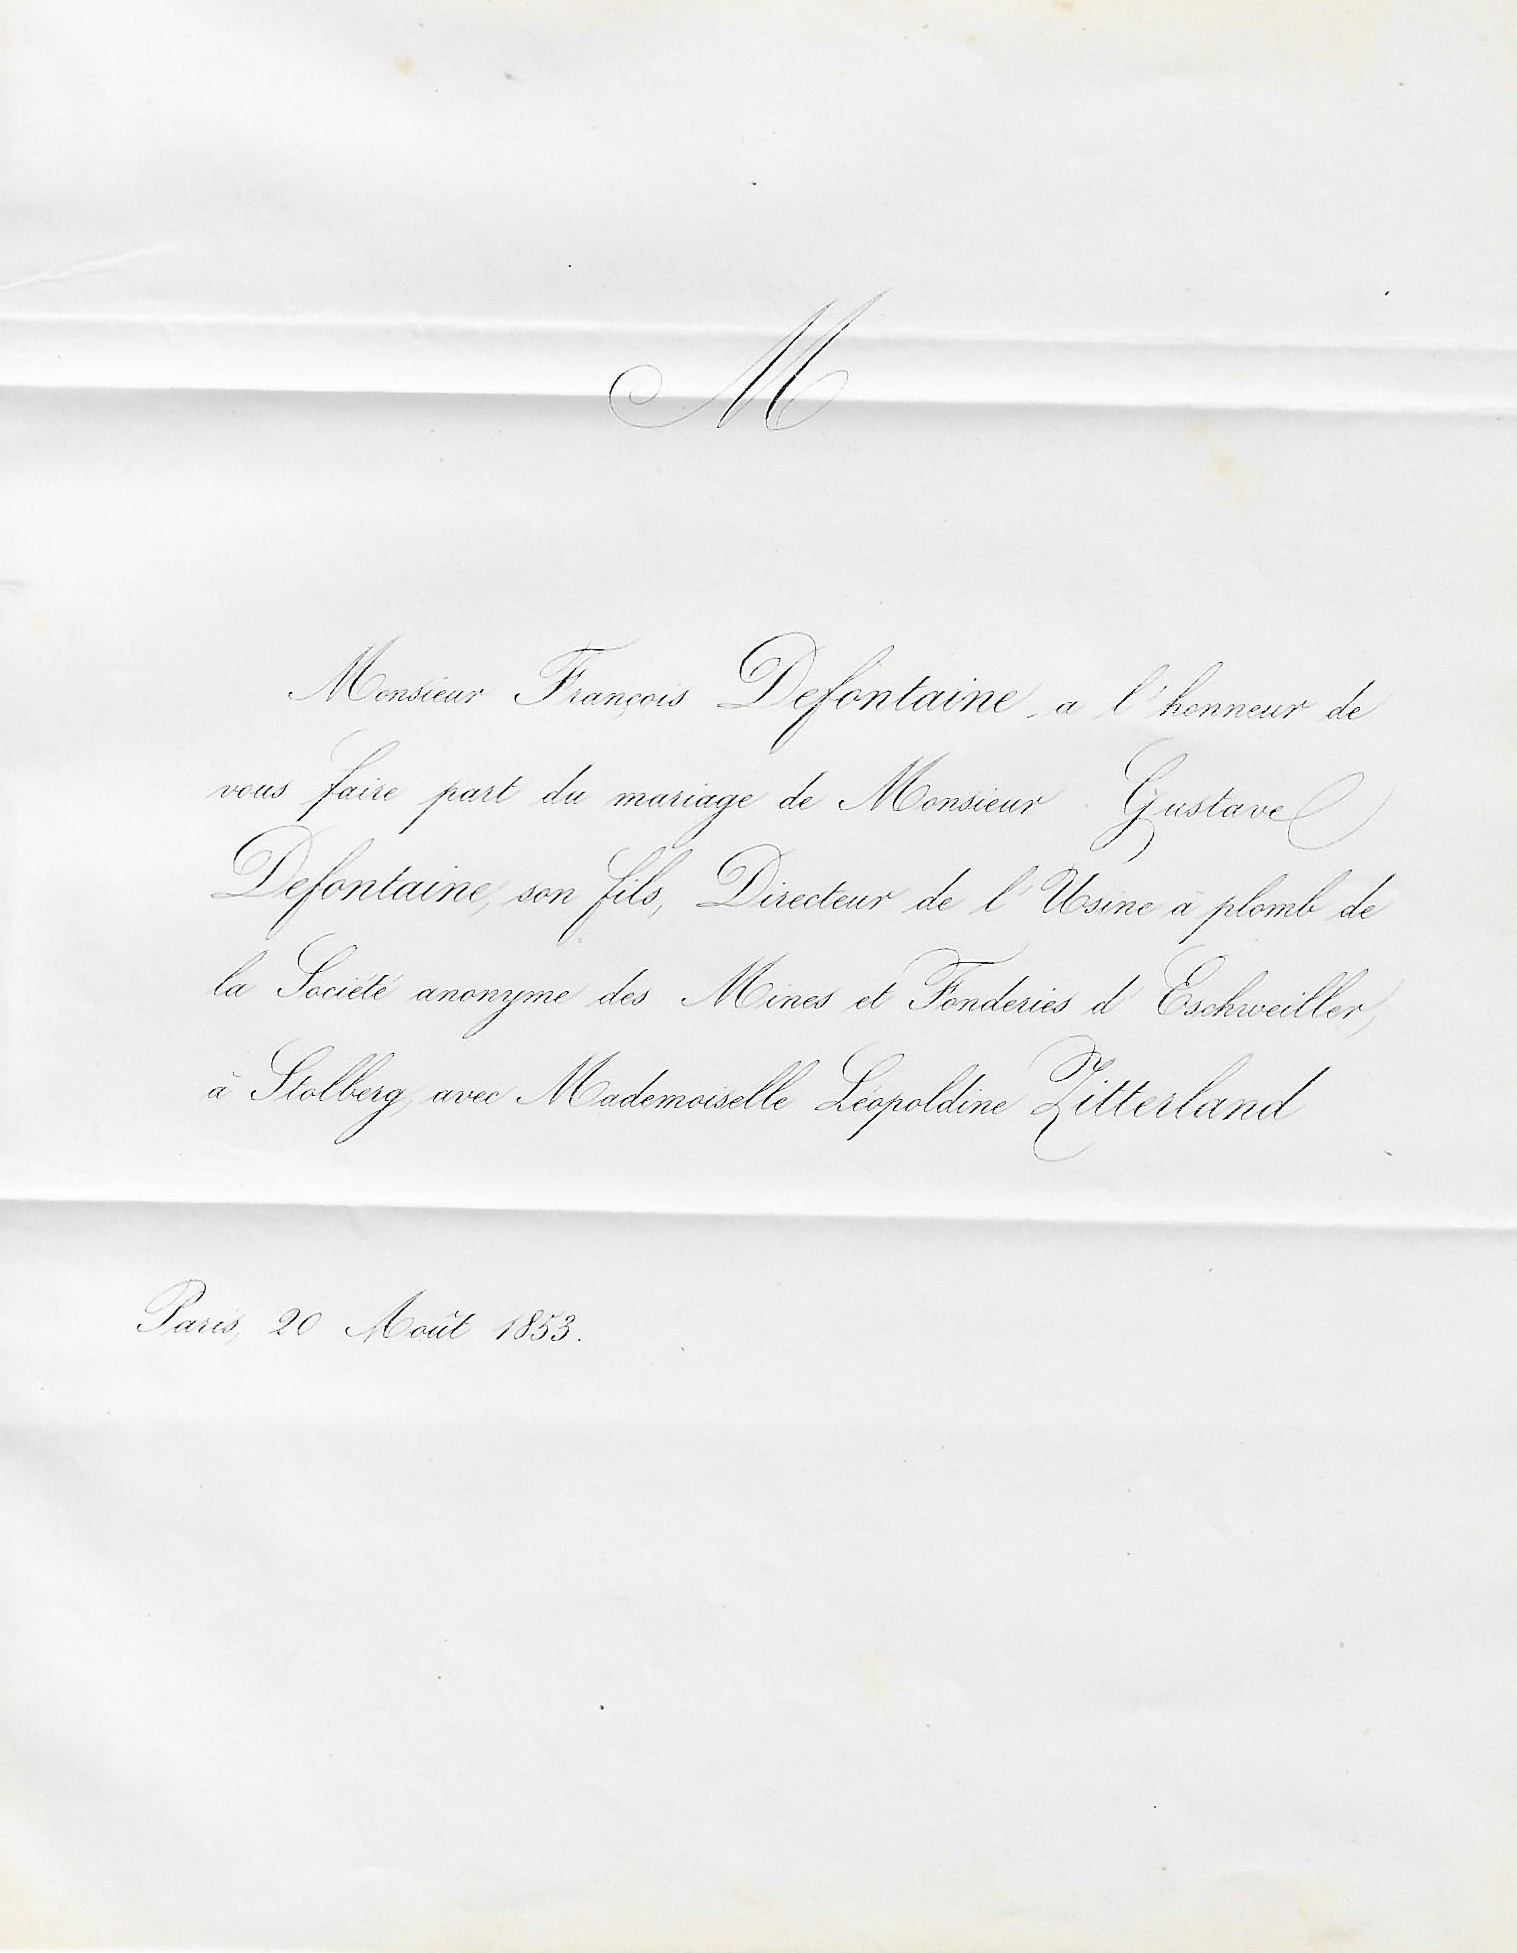 M
Monsieur François Defontaine a l'honneur de
vous faire part du mariage de Monsieur Gustave
Defontaine, son fils, Directeur de l'Usine à plomb de
la Société anonyme des Mines et Fonderies d'Eschweiller,
à Stolberg, avec Mademoiselle Léopoldine Zitterland
Paris, 20 Août 1853.